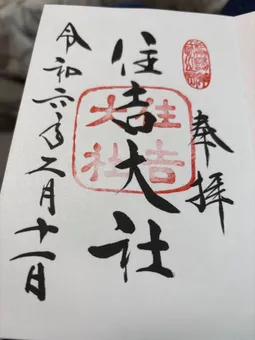 奉拝
住吉大社
住吉大社
令和六年二月十一日